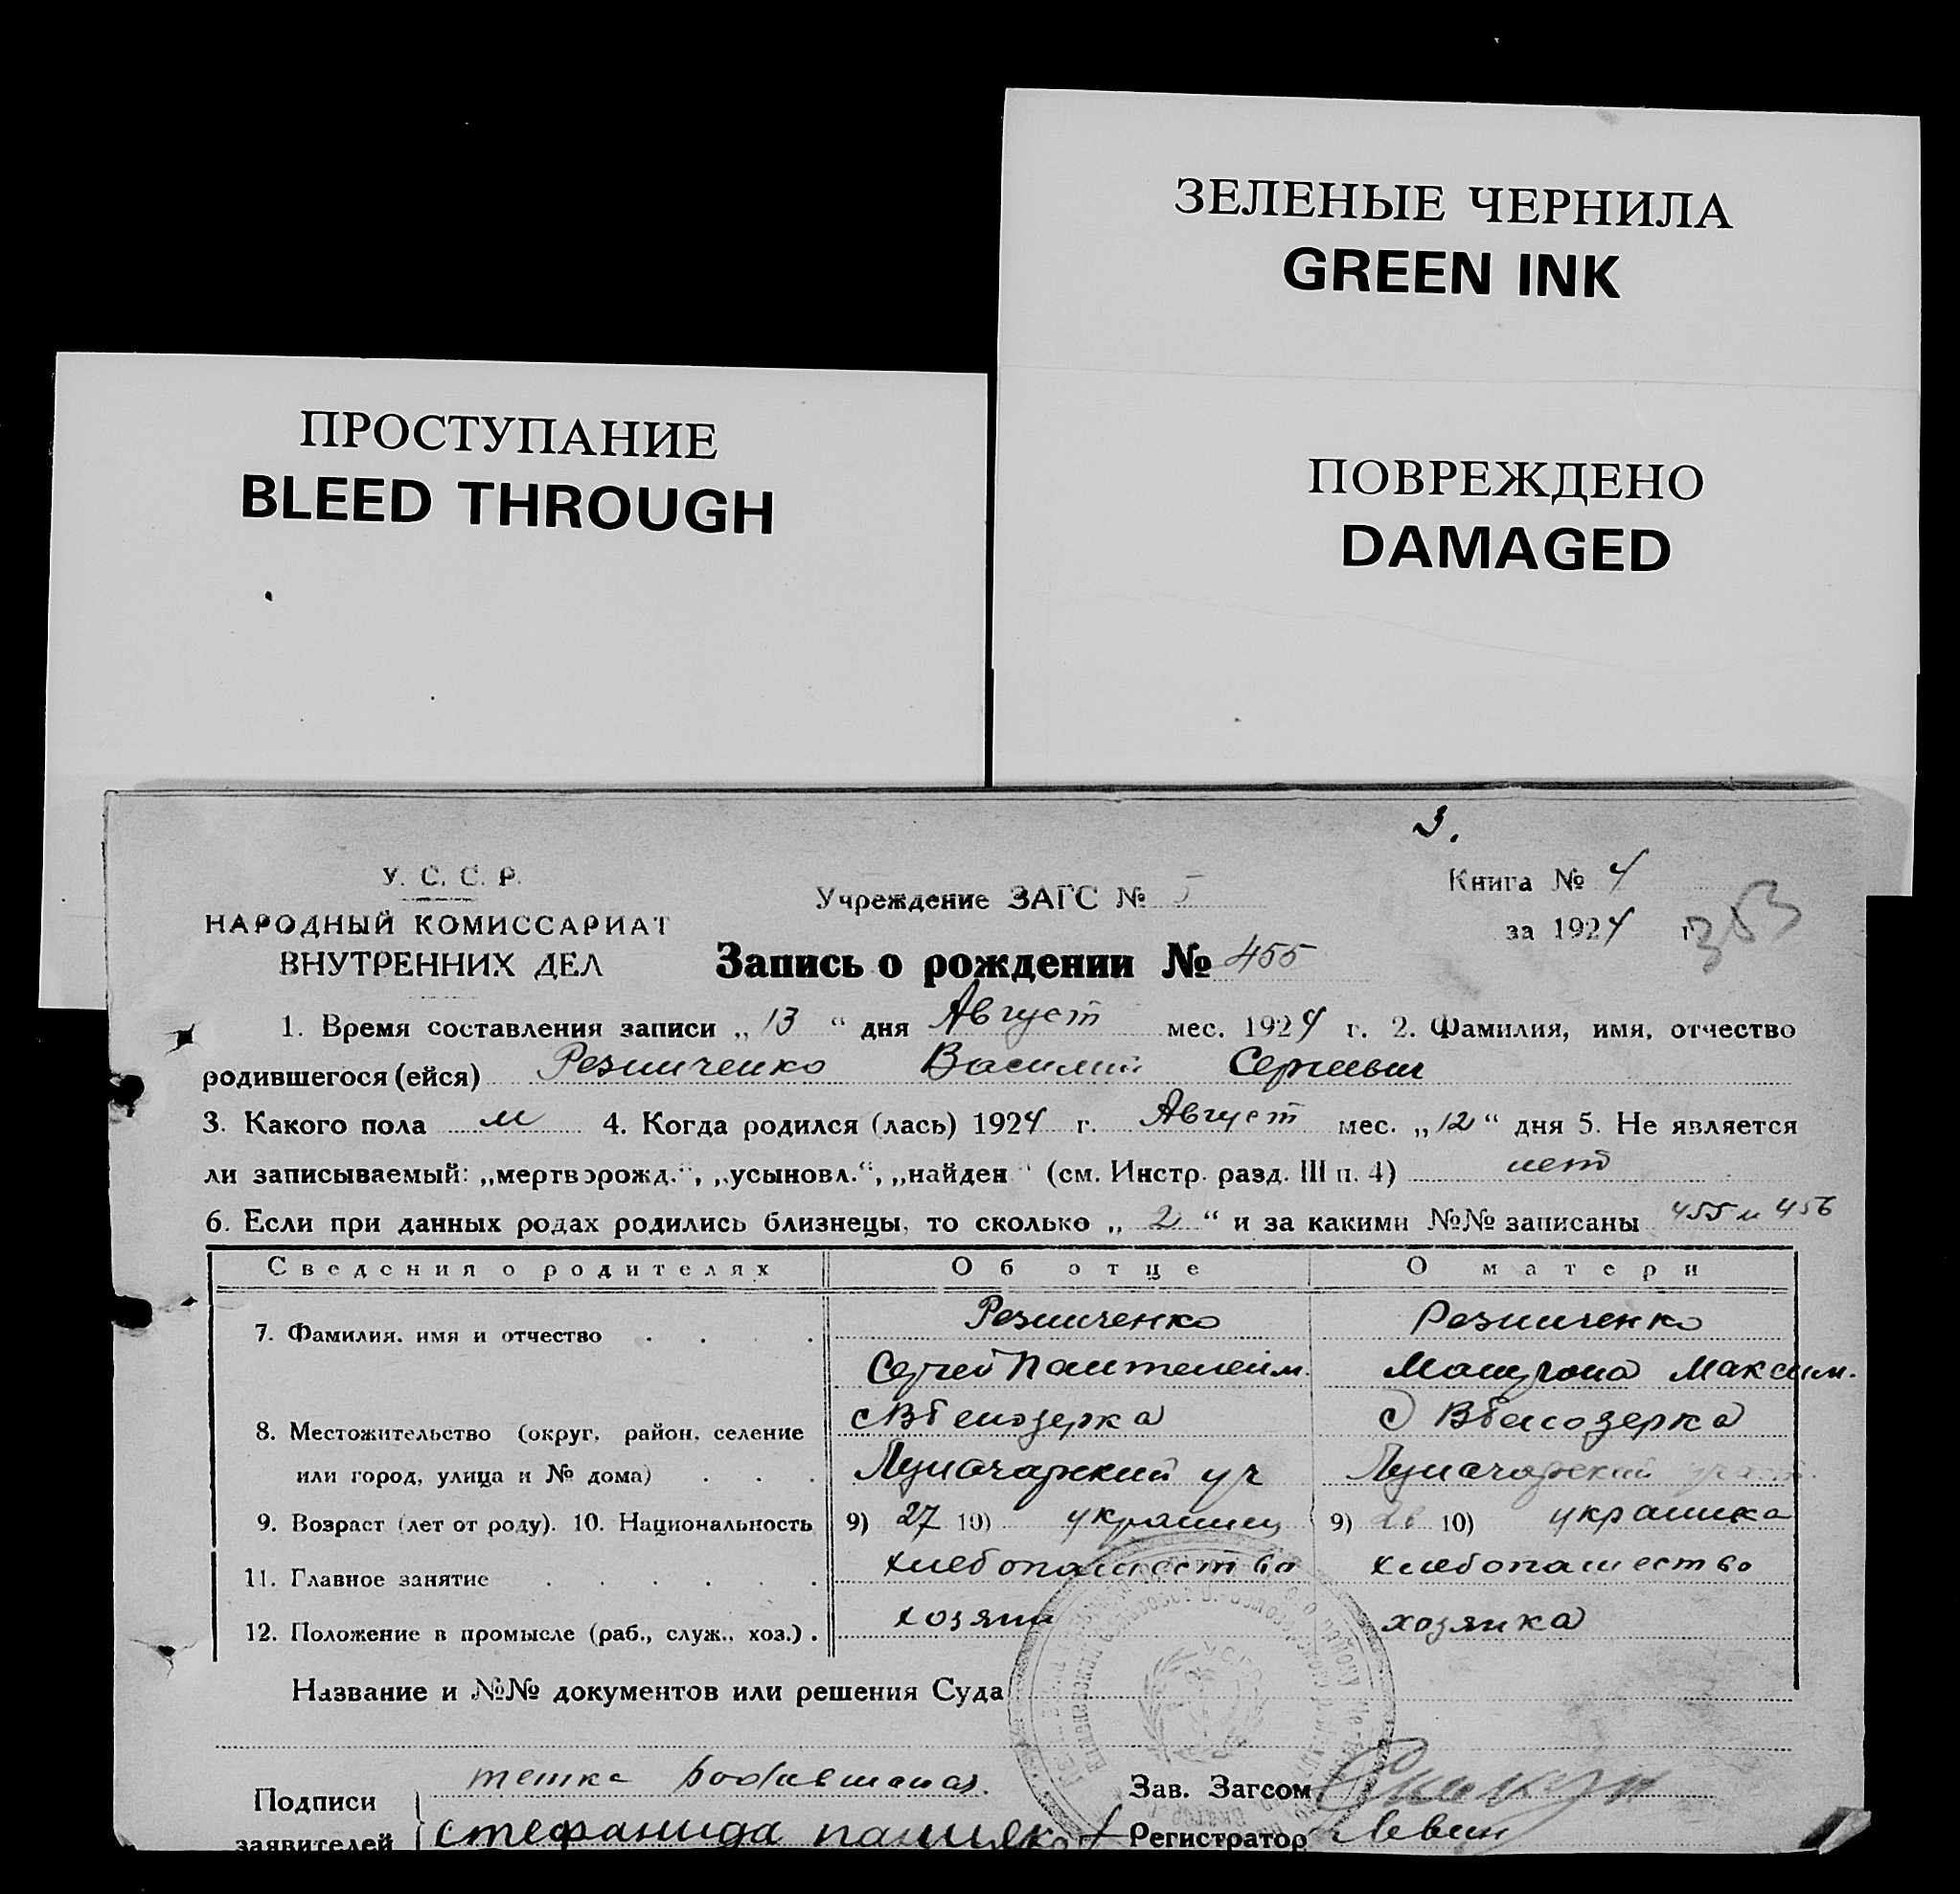 ЗЕЛЕНЫЕ ЧЕРНИЛА
GREEN INK
ПРОСТУПАНИЕ
BLEED THROUGH
ПОВРЕЖДЕНО
DAMAGED
3.
У. С. С. Р.
НАРОДНЫЙ КОМИССАРИАТ
ВНУТРЕННИХ ДЕЛ
Учреждение ЗАГС № 5
Книга № 4
за 1924 г. 353
Запись о рождении № 455
1. Время составления записи „13“ дня Август мес. 1924 г. 2. Фамилия, имя, отчество
родившегося (ейся) Резниченко Василий Сергеевич
3. Какого пола м 4. Когда родился (лась) 1924 г. Август мес. „12“ дня 5. Не является
ли записываемый: „мертворожд.“, „усыновл.“, „найден“ (см. Инстр. разд. III п. 4) нет
6. Если при данных родах родились близнецы, то сколько „2“ и за какими №№ записаны 455 и 456
Сведения о родителях Об отце О матери
7. Фамилия, имя и отчество . . . . Резниченко Резниченко
Сергей Пантелейм. Максим.
8. Местожительство (округ, район, селение с Вбелозерка с Вбелозерка
или город, улица и № дома) . . . Луначарский уч Луначарский участ.
9. Возраст (лет от роду). 10. Национальность 9) 27 10) украинец 9) 26 10) украинка
11. Главное занятие . . . . . . хлебопашество хлебопашество
12. Положение в промысле (раб., служ., хоз.) . хозяин хозяйка
Название и №№ документов или решения Суда
Подписи заявителей тетка
Стефанида
Зав. Загсом
Регистратор Левин